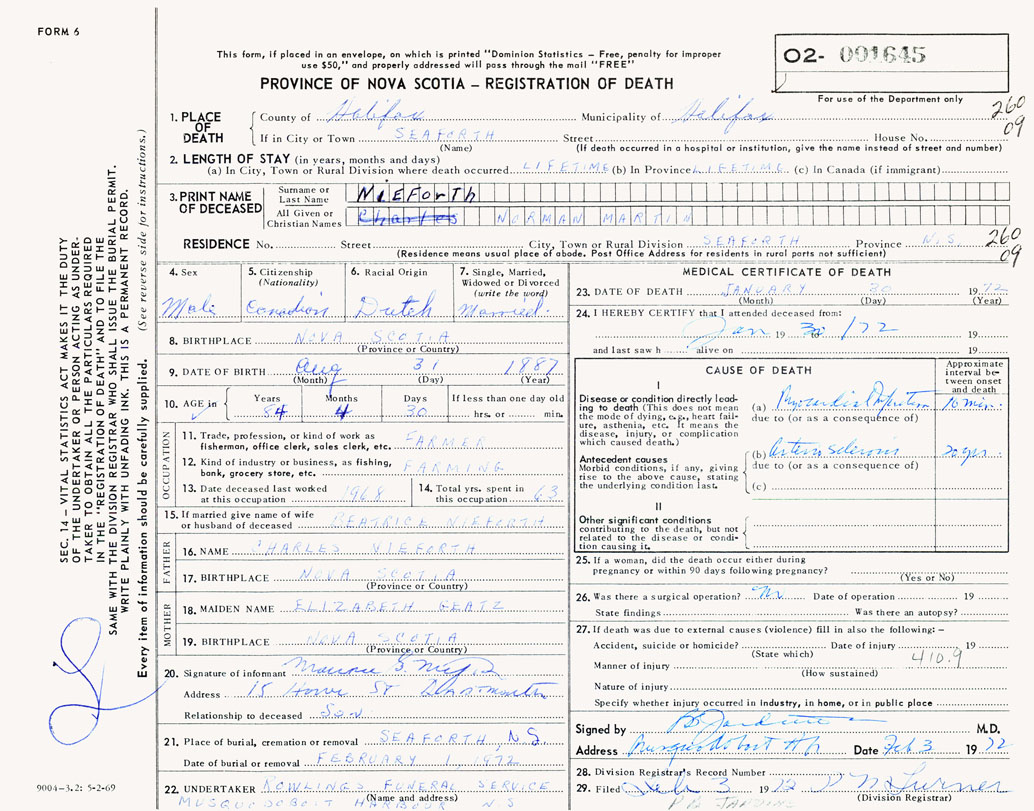 FORM 6
This form, if placed in an envelope, on which is printed "Dominion Statistics – Free, penalty for improper
use $50," and properly addressed will pass through the mail "FREE"
PROVINCE OF NOVA SCOTIA – REGISTRATION OF DEATH
O2- 001645
For use of the Department only
260
09
1. PLACE OF DEATH
County of Halifax Municipality of Halifax
If in City or Town SEAFORTH Street House No.
(Name) (If death occurred in a hospital or institution, give the name instead of street and number)
2. LENGTH OF STAY (in years, months and days)
(a) In City, Town or Rural Division where death occurred LIFETIME (b) In Province LIFETIME (c) In Canada (if immigrant)
3. PRINT NAME OF DECEASED
Surname or Last Name NIEForth
All Given or Christian Names Charles NORMAN MARTIN
RESIDENCE No. Street City, Town or Rural Division SEAFORTH Province N.S
(Residence means usual place of abode. Post Office Address for residents in rural parts not sufficient)
260
09
4. Sex
Male
5. Citizenship
(Nationality)
Canadian
6. Racial Origin
Dutch
7. Single, Married,
Widowed or Divorced
(write the word)
Married.
8. BIRTHPLACE NOVA SCOTIA
(Province or Country)
9. DATE OF BIRTH Aug 31 1887
(Month) (Day) (Year)
10. AGE in
Years Months Days If less than one day old
84 4 30 hrs. or min.
OCCUPATION
11. Trade, profession, or kind of work as
fisherman, office clerk, sales clerk, etc. FARMER
12. Kind of industry or business, as fishing,
bank, grocery store, etc. FARMING
13. Date deceased last worked
at this occupation 1968
14. Total yrs. spent in
this occupation 63
15. If married give name of wife
or husband of deceased BEATRICE NIEFORTH
FATHER
16. NAME CHARLES NIEFORTH
17. BIRTHPLACE NOVA SCOTIA
(Province or Country)
MOTHER
18. MAIDEN NAME ELIZABETH
19. BIRTHPLACE NOVA SCOTIA
(Province or Country)
20. Signature of informant
Address 15 Howe St Dartmouth
Relationship to deceased Son
21. Place of burial, cremation or removal SEAFORTH, N.S
Date of burial or removal FEBRUARY 1, 1972
22. UNDERTAKER ROWLINGS FUNERAL SERVICE
(Name and address)
MUSQUODOBOIT HARBOUR N.S
MEDICAL CERTIFICATE OF DEATH
23. DATE OF DEATH JANUARY 30 1972
(Month) (Day) (Year)
24. I HEREBY CERTIFY that I attended deceased from:
Jan 19 30 /72 19
and last saw h alive on 19
CAUSE OF DEATH
Approximate interval between onset and death
I
Disease or condition directly leading to death (This does not mean the mode of dying, e.g., heart failure, asthenia, etc. It means the disease, injury, or complication which caused death.)
(a) Myocardial Infarction 10 min.
due to (or as a consequence of)
Antecedent causes
Morbid conditions, if any, giving rise to the above cause, stating the underlying condition last.
(b) Arterio Sclerosis 20 yrs.
due to (or as a consequence of)
(c)
II
Other significant conditions
contributing to the death, but not related to the disease or condition causing it.
25. If a woman, did the death occur either during
pregnancy or within 90 days following pregnancy?
(Yes or No)
26. Was there a surgical operation? No Date of operation 19
State findings Was there an autopsy?
27. If death was due to external causes (violence) fill in also the following: –
Accident, suicide or homicide? Date of injury 19
(State which) 410.9
Manner of injury
(How sustained)
Nature of injury
Specify whether injury occurred in Industry, in home, or in public place
Signed by B. Jardine M.D.
Address Musquodoboit Hr Date Feb 3 19 72
28. Division Registrar's Record Number
29. Filed Feb 3 1972 Turner
(Division Registrar)
P B JARDINE
SEC. 14 – VITAL STATISTICS ACT MAKES IT THE DUTY
OF THE UNDERTAKER OR PERSON ACTING AS UNDER-
TAKER TO OBTAIN ALL THE PARTICULARS REQUIRED
IN THE "REGISTRATION OF DEATH" AND TO FILE THE
SAME WITH THE DIVISION REGISTRAR WHO SHALL ISSUE THE BURIAL PERMIT.
WRITE PLAINLY WITH UNFADING INK. THIS IS A PERMANENT RECORD.
Every item of information should be carefully supplied. (See reverse side for instructions.)
9004-3.2: 5-2-69